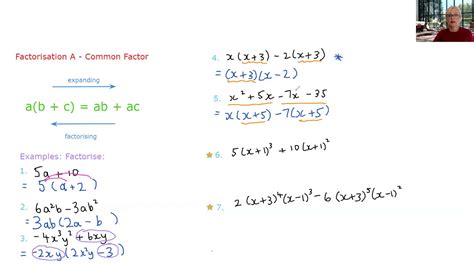 Factorisation A - Common Factor
expanding
a(b + c) = ab + ac
factorising
Examples: Factorise:
1. 5a + 10
= 5 (a + 2)
2. 6a²b - 3ab²
= 3ab (2a - b)
3. -4x³y² + 6xy
= -2xy (2x²y - 3)
4. x(x+3) - 2(x+3) *
= (x+3)(x-2)
5. x² + 5x - 7x - 35
= x(x+5) - 7(x+5)
6. 5(x+1)³ + 10(x+1)²
7. 2(x+3)⁴(x-1)³ - 6(x+3)⁵(x-1)²